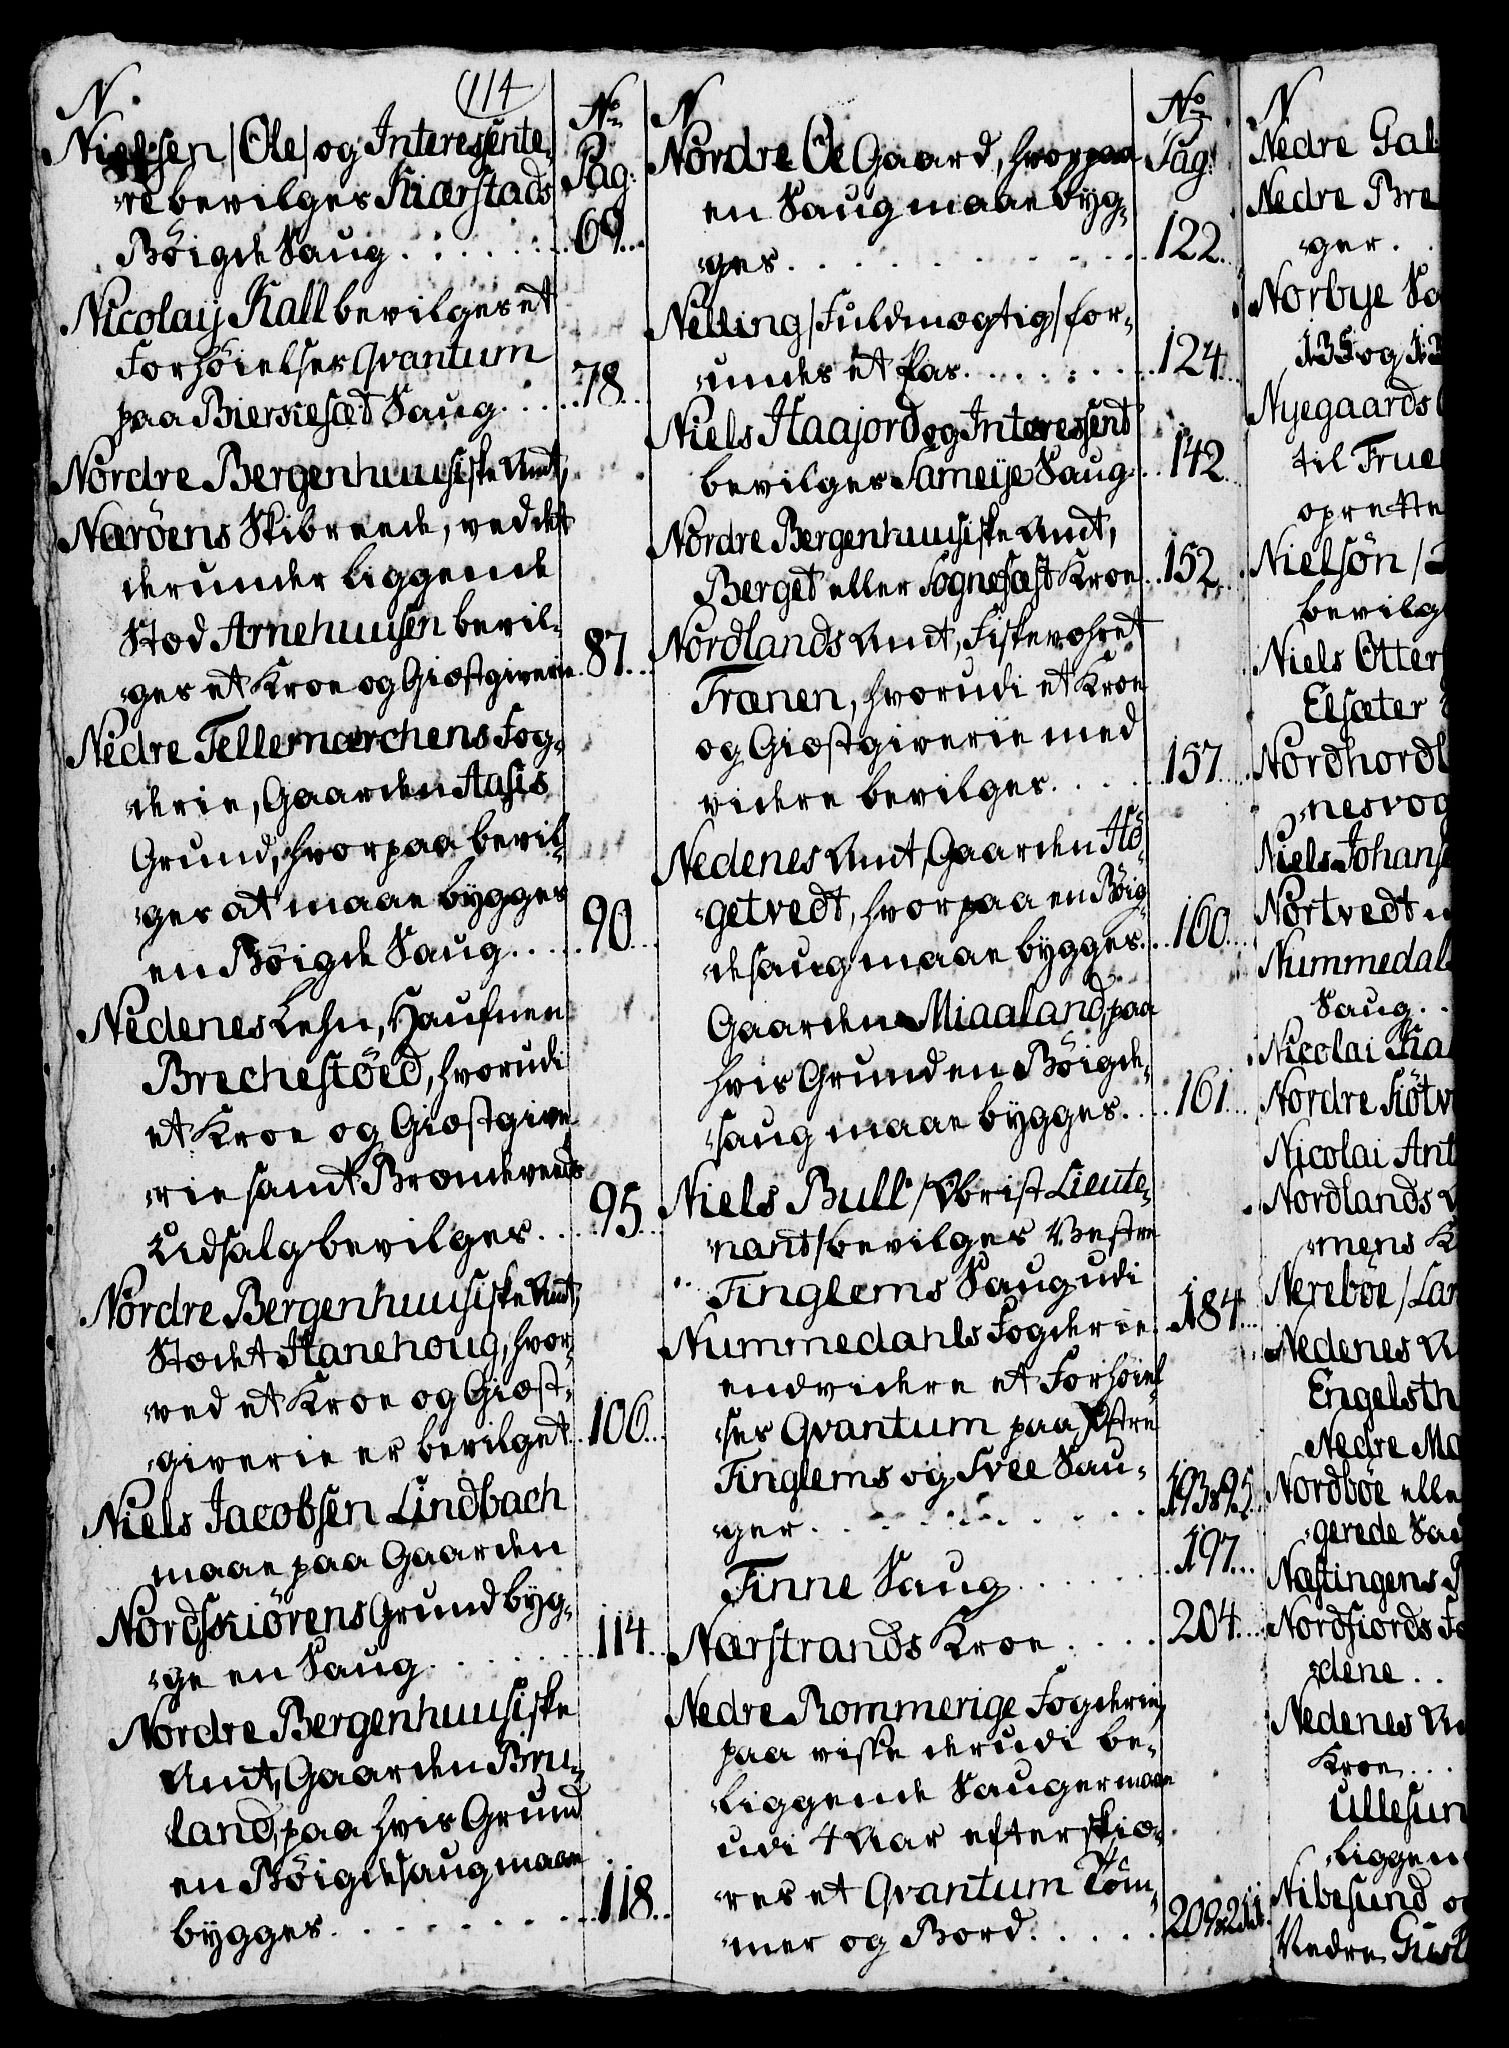 N.
114
No
Pag:
Nielsen /Ole/ og Interessente,
re bevilges Kiærstads
Böigde Saug . . . . . . . 69.
Nicolaij Kall bevilges et
Forhöielses Qvantum
paa Bierkesæt Saug . . . . 78.
Nordre Bergenhuusiske Amt,
Næröens Skibreede, ved det
derunder liggende
Stæd Arnehuusen bevil-
ges et Kroe og Giæstgiverie. 87.
Nedre Tellemærchens Fog-
derie, Gaarden Aasis
Grund, hvorpaa bevil-
ges at maae bygges
en Böigde Saug . . . . . 90.
Nedenes Lehn, Haufnen
Brechestöed, hvorudi
et Kroe og Giæstgive
rie samt Brændeviins
Udsalg bevilges . . . . 95.
Nordre Bergenhuusiske Amt,
Stædet Hanehoug, hvor-
ved et Kroe og Giæst-
giverie er bevilget. 106.
Niels Jacobsen Lindbach
maae paa Gaarden
Nordskiörens Grund byg-
ge en Saug . . . . . . . 114.
Nordre Bergenhuusiske
Amt, Gaarden Bru-
land, paa hvis Grund
en Böigdesaug maae
bygges . . . . . . . . . 118.
N
No
Pag:
Nordre Öe Gaard, hvorpaa
en Saug maae byg-
ges . . . . . . . . . . . 122.
Nelling /Fuldmægtig/ for-
undes et Pas . . . . . . 124.
Niels Haajord og Interessent
bevilges Sameije Saug. 142.
Nordre Bergenhuusiske Amt,
Berget eller Sognefæst Kroe. 152.
Nordlands Amt, Fiskeværet
Trænen, hvorudi et Kroe
og Giæstgiverie med
videre bevilges . . . . 157.
Nedenes Amt, Gaarden Hö-
getvedt, hvorpaa en Böig-
desaug maae bygges. 160.
Gaarden Miaaland, paa
hvis Grund en Böigde-
saug maae bygges . . 161.
Niels Bull /Obrist Lieute-
nant/ bevilges Vestre
Tinglems Saug udi
Nummedahls Fogderie. 184.
endvidere et Forhöiel-
ses Qvantum paa Östre
Tinglems og Svee Sau-
ger . . . . . . . . . . 193 & 95.
Tinne Saug . . . . . . 197.
Nærstrands Kroe . . . . 204.
Nedre Rommerige Fogderie,
paa visse derudi be-
liggende Sauger maae
udi 4 Aar efterskiæ-
res et Qvantum Töm-
mer og Bord . . . . . . 209 & 211.
N
Nedre Gal
Nedre Bre
ger.
Norbye Sa
135 og 13
Nyegaards
til Frue
oprette
Nielsön /
bevilg
Niels Otter
Elsæter
Nordhordl
nesvog
Niels Johans
Nortvedt
Nummedal
Saug .
Nicolai Ka
Nordre Kiötv
Nicolai Ant
Nordlands
mens K
Nereböe /Lar
Nedenes
Engelsth
Nedre Mo
Nordböe elle
gerede Sau
Næstingens
Nordfiords Fo
dene . .
Nedenes
Kroe . . .
Ullesun
liggen
Nibesund
Nedre